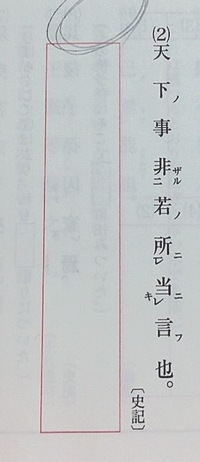 (2)天下ノ事非ザル二若ノ所ニレ当ニキレ言フ也。
〔史記〕